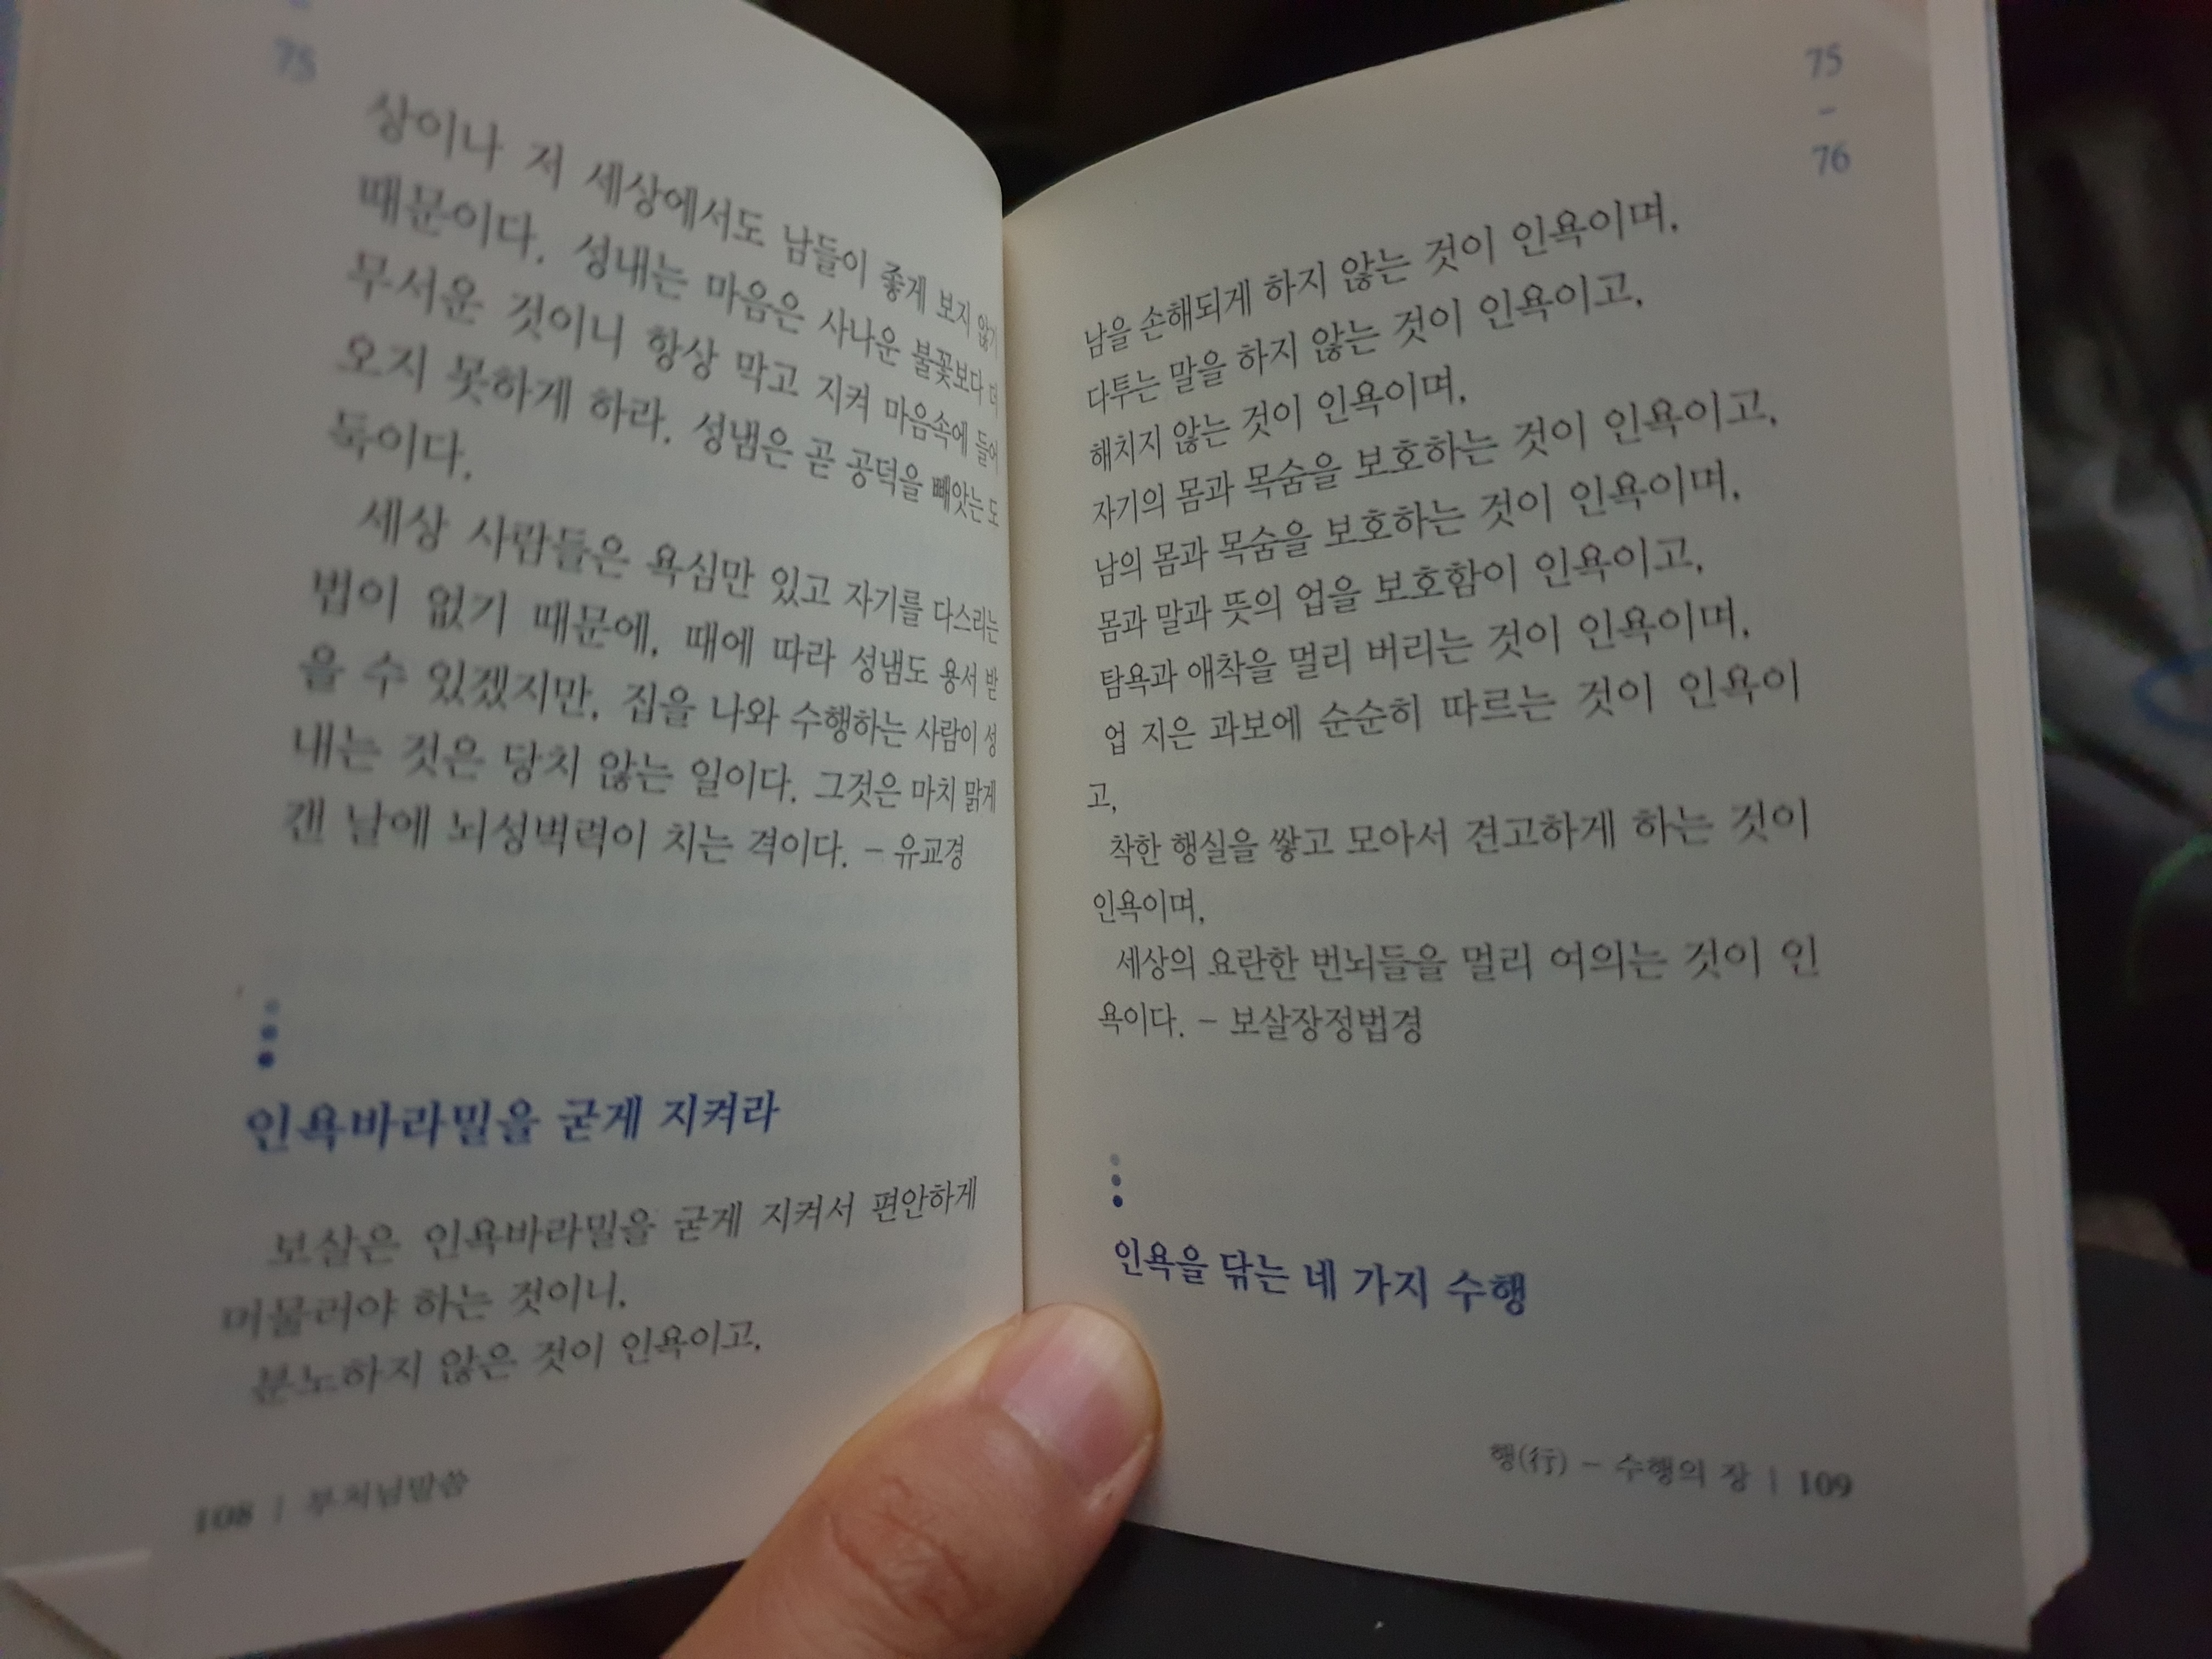 75
상이나 저 세상에서도 남들이 좋게 보지 않기
때문이다. 성내는 마음은 사나운 불꽃보다 더
무서운 것이니 항상 막고 지켜 마음속에 들어
오지 못하게 하라. 성냄은 곧 공덕을 빼앗는 도
둑이다.
세상 사람들은 욕심만 있고 자기를 다스리는
법이 없기 때문에, 때에 따라 성냄도 용서 받
을 수 있겠지만, 집을 나와 수행하는 사람이 성
내는 것은 당치 않는 일이다. 그것은 마치 맑게
갠 날에 뇌성벽력이 치는 격이다. - 유교경
인욕바라밀을 굳게 지켜라
보살은 인욕바라밀을 굳게 지켜서 편안하게
머물러야 하는 것이니,
분노하지 않은 것이 인욕이고,
108 | 부처님말씀
75
-
76
남을 손해되게 하지 않는 것이 인욕이며,
다투는 말을 하지 않는 것이 인욕이고,
해치지 않는 것이 인욕이며,
자기의 몸과 목숨을 보호하는 것이 인욕이고,
남의 몸과 목숨을 보호하는 것이 인욕이며,
몸과 말과 뜻의 업을 보호함이 인욕이고,
탐욕과 애착을 멀리 버리는 것이 인욕이며,
업 지은 과보에 순순히 따르는 것이 인욕이
고,
착한 행실을 쌓고 모아서 견고하게 하는 것이
인욕이며,
세상의 요란한 번뇌들을 멀리 여의는 것이 인
욕이다. - 보살장정법경
인욕을 닦는 네 가지 수행
행(行) - 수행의 장 | 109